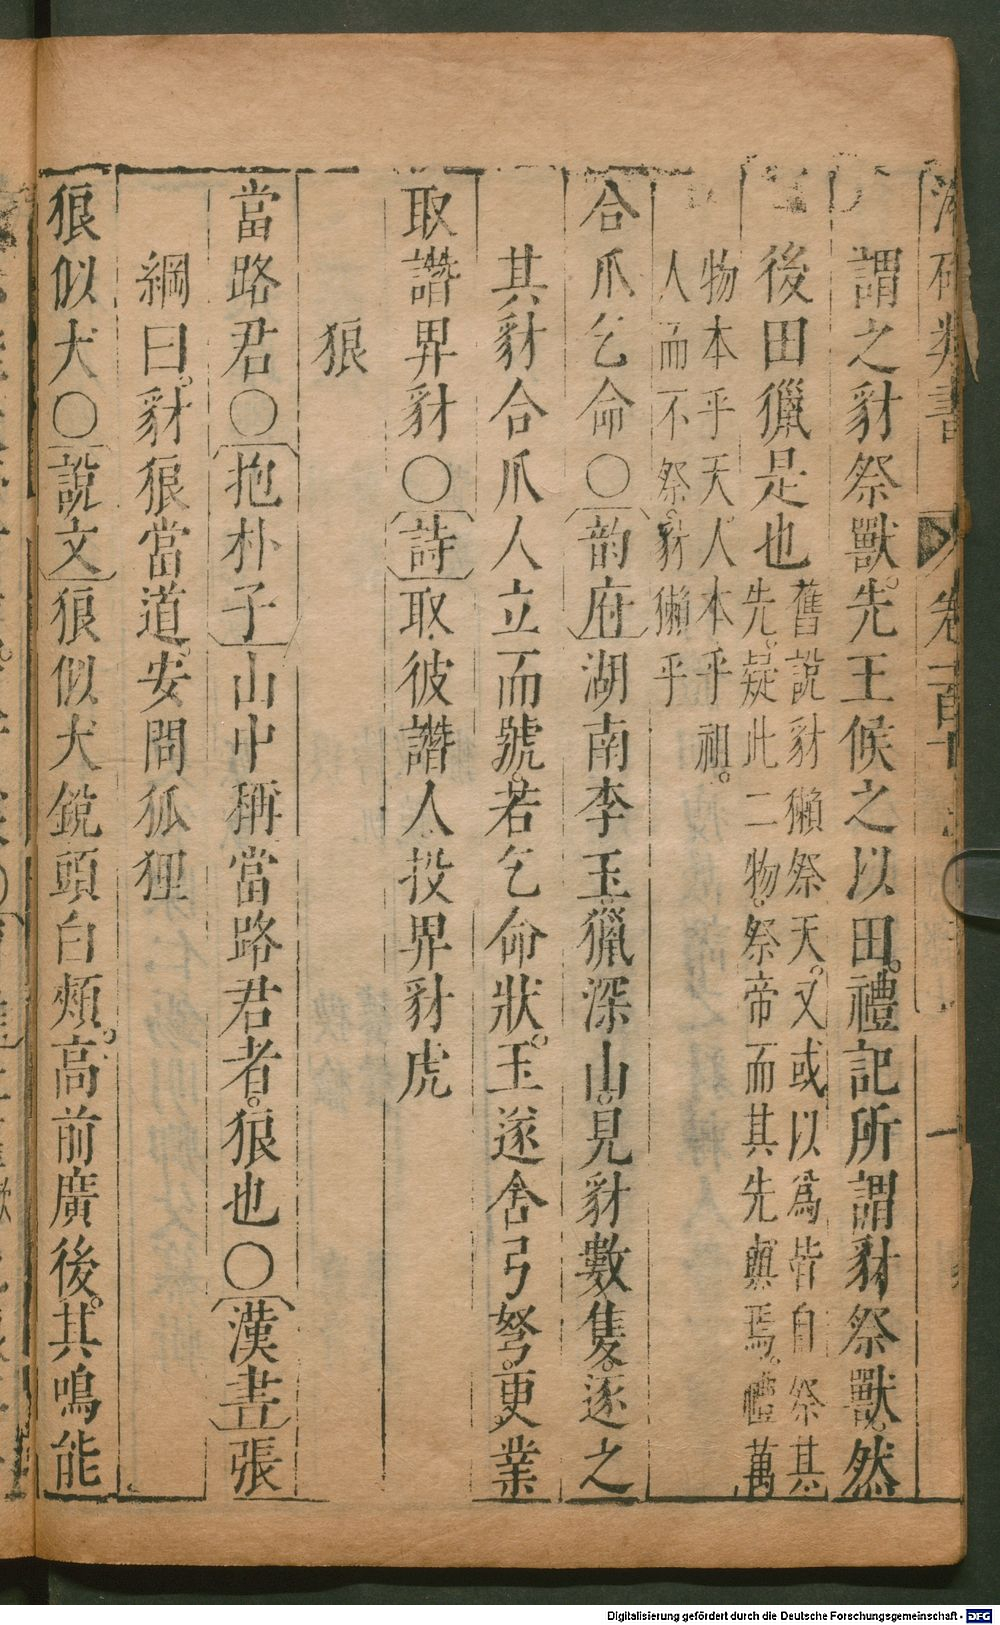 類書 卷一百十
謂之豺祭獸。先王候之以田。禮記所謂豺祭獸。然
後田獵是也舊說豺獺祭天。又或以爲皆自祭其
先。疑此二物。祭帝而其先與焉。禮萬
物本乎天。人本乎祖。
人而不祭。豺獺乎
合爪乞命○韵府湖南李玉獵深山。見豺數隻。逐之
其豺合爪人立而號。若乞命狀。玉遂舍弓弩。更業
取譖畀豺○詩取彼譖人投畀豺虎
狼
當路君○抱朴子山中稱當路君者。狼也○漢書張
綱曰。豺狼當道。安問狐狸
狼似犬○說文狼似犬銳頭白頰。高前廣後。其鳴能
Digitalisierung gefördert durch die Deutsche Forschungsgemeinschaft - DFG